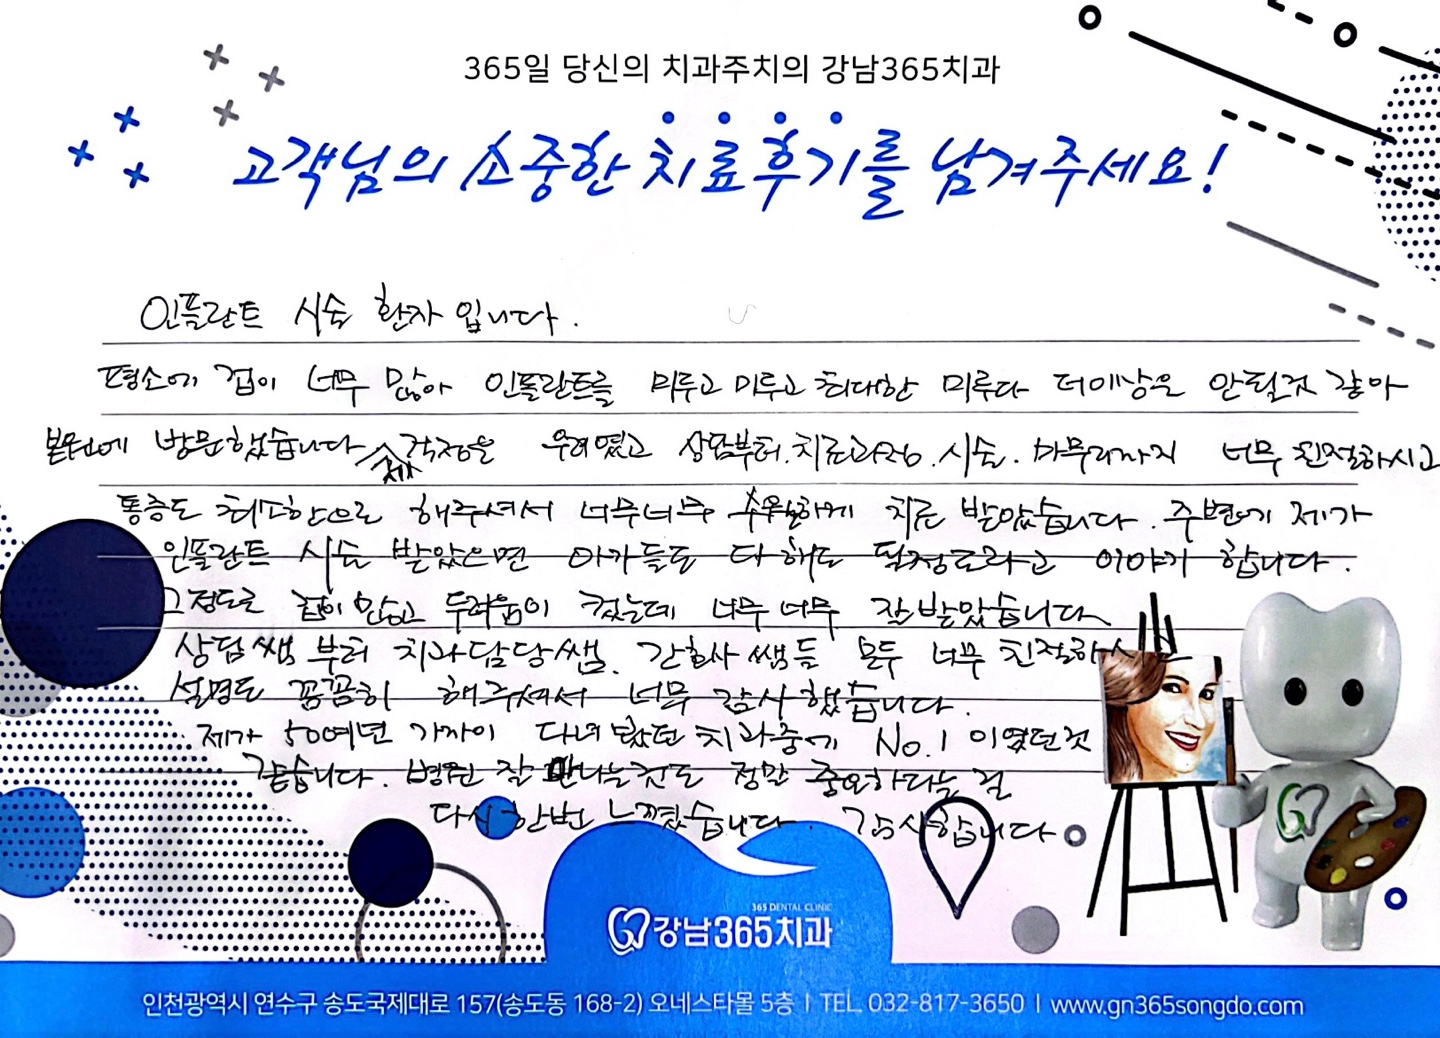 365일 당신의 치과주치의 강남365치과
고객님의 소중한 치료후기를 남겨주세요!
인플란트 시술 환자 입니다.
평소에 겁이 너무 많아 인플란트를 미루고 미루고 최대한 미루다 더이상은 안될것 같아
본원에 방문했습니다 제 걱정을 우려였고 상담부터.치료과정.시술.마무리까지 너무 친절하시고
통증도 최소한으로 해주셔서 너무너무 수월하게 치료 받았습니다. 주변에 제가
인플란트 시술 받았으면 아가들도 다 해도 될정도라고 이야기 합니다.
그정도로 겁이 많고 두려움이 컸는데 너무 너무 잘 받았습니다
상담쌤 부터 치과담당쌤. 간호사 쌤들 모두 너무 친절하시고
설명도 꼼꼼히 해주셔서 너무 감사했습니다.
제가 50여년 가까이 다녀 봤던 치과중에 No.1 이였던것
같습니다. 병원 잘 만나는것도 정말 중요하다는 걸
다시 한번 느꼈습니다. 감사합니다
365 DENTAL CLINIC
강남365치과
인천광역시 연수구 송도국제대로 157(송도동 168-2) 오네스타몰 5층 | TEL. 032-817-3650 | www.gn365songdo.com